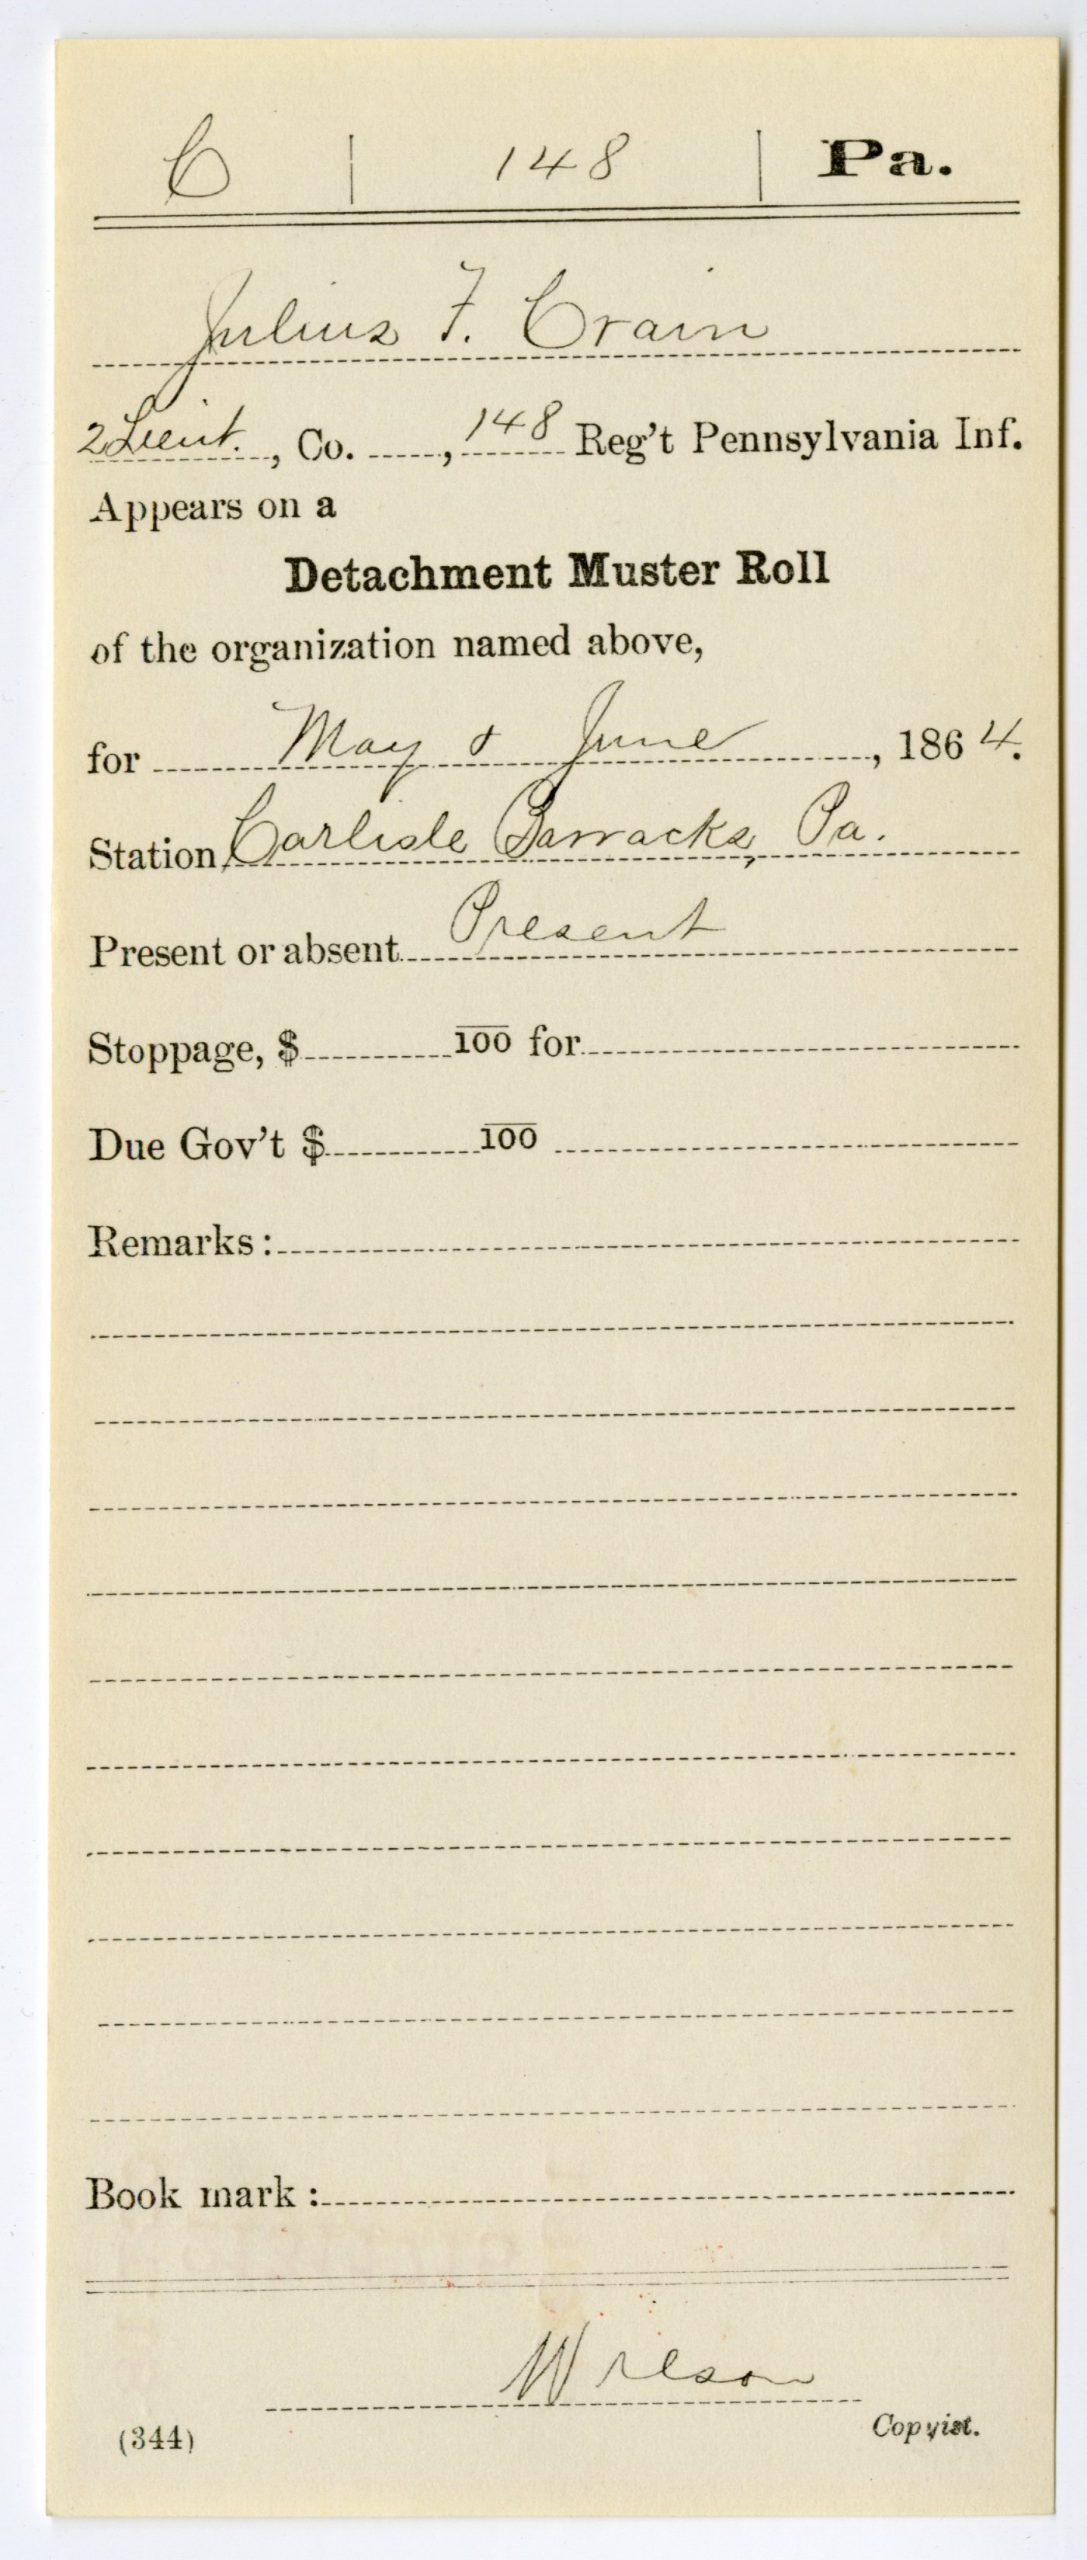 C | 148 | Pa.
Julius F. Crain
2 Lieut., Co. ....., 148 Reg't Pennsylvania Inf.
Appears on a
Detachment Muster Roll
of the organization named above,
for May & June, 1864.
Station, Carlisle Barracks, Pa.
Present or absent Present
Stoppage, $ 100 for
Due Gov't $ 100
Remarks:
Book mark:
Wilson
(344) Copyist.